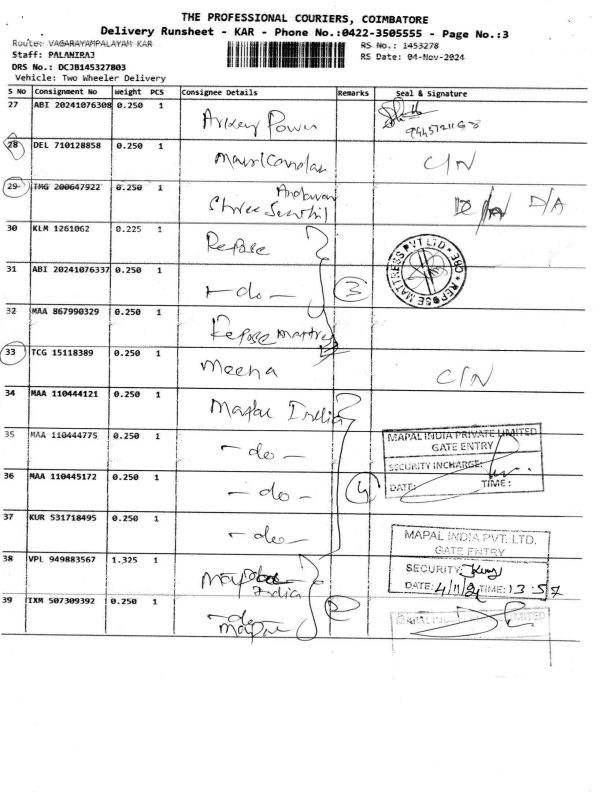 THE PROFESSIONAL COURIERS, COIMBATORE
Delivery Runsheet - KAR - Phone No.:0422-3505555 - Page No.:3
Route: VAGARAYAMPALAYAM KAR
RS No.: 1453278
Staff: PALANIRAJ
RS Date: 04-Nov-2024
DRS No.: DCJB145327803
Vehicle: Two Wheeler Delivery
S No Consignment No Weight PCS Consignee Details Remarks Seal & Signature
27 ABI 20241076308 0.250 1 Power
28 DEL 710128858 0.250 1 C/N
29 TMG 200647922 0.250 1 Shree D/A
30 KLM 1261062 0.225 1 Repose
REPOSE MATTRESS PVT LTD * CBE *
31 ABI 20241076337 0.250 1 - do - 3
32 MAA 867990329 0.250 1 Repose
33 TCG 15118389 0.250 1 Meena C/N
34 MAA 110444121 0.250 1 Mapal India
MAPAL INDIA PRIVATE LIMITED
GATE ENTRY
35 MAA 110444775 0.250 1 - do -
SECURITY INCHARGE:
36 MAA 110445172 0.250 1 - do - 4
DATE: TIME:
37 KUR 531718495 0.250 1 - do -
MAPAL INDIA PVT. LTD.
GATE ENTRY
38 VPL 949883567 1.325 1 India
SECURITY
DATE: 4/11/24 TIME: 13:57
39 IXM 507309392 0.250 1 - do - 2
Mapal